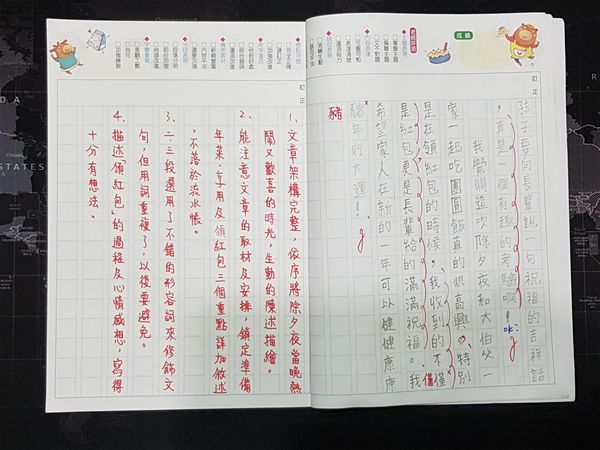 成績
老師評語
訂正
孩子要向長輩說一句祝福的吉祥話
,真是一個有趣的考驗啊!
OK!
我覺得這次除夕夜和大伯父一
家一起吃團圓飯真的很高興。特別
是在領紅包的時候,我收到的不僅
是紅包更是長輩給的滿滿祝福。我
僅
希望家人在新的一年可以健健康康
豬年行大運!
豬
訂正
1、文章架構完整,依序將除夕夜當晚熱
鬧又歡喜的時光,生動的陳述描繪。
2、能注意文章的取材及安排,鎖定準備
年菜、享用及領紅包三個重點詳加敘述
,不落於流水帳。
3、二、三段選用了不錯的形容詞來修飾文
句,但用詞重複了,以後要避免。
4、描述「領紅包」的過程及心情感想,寫得
十分有想法。